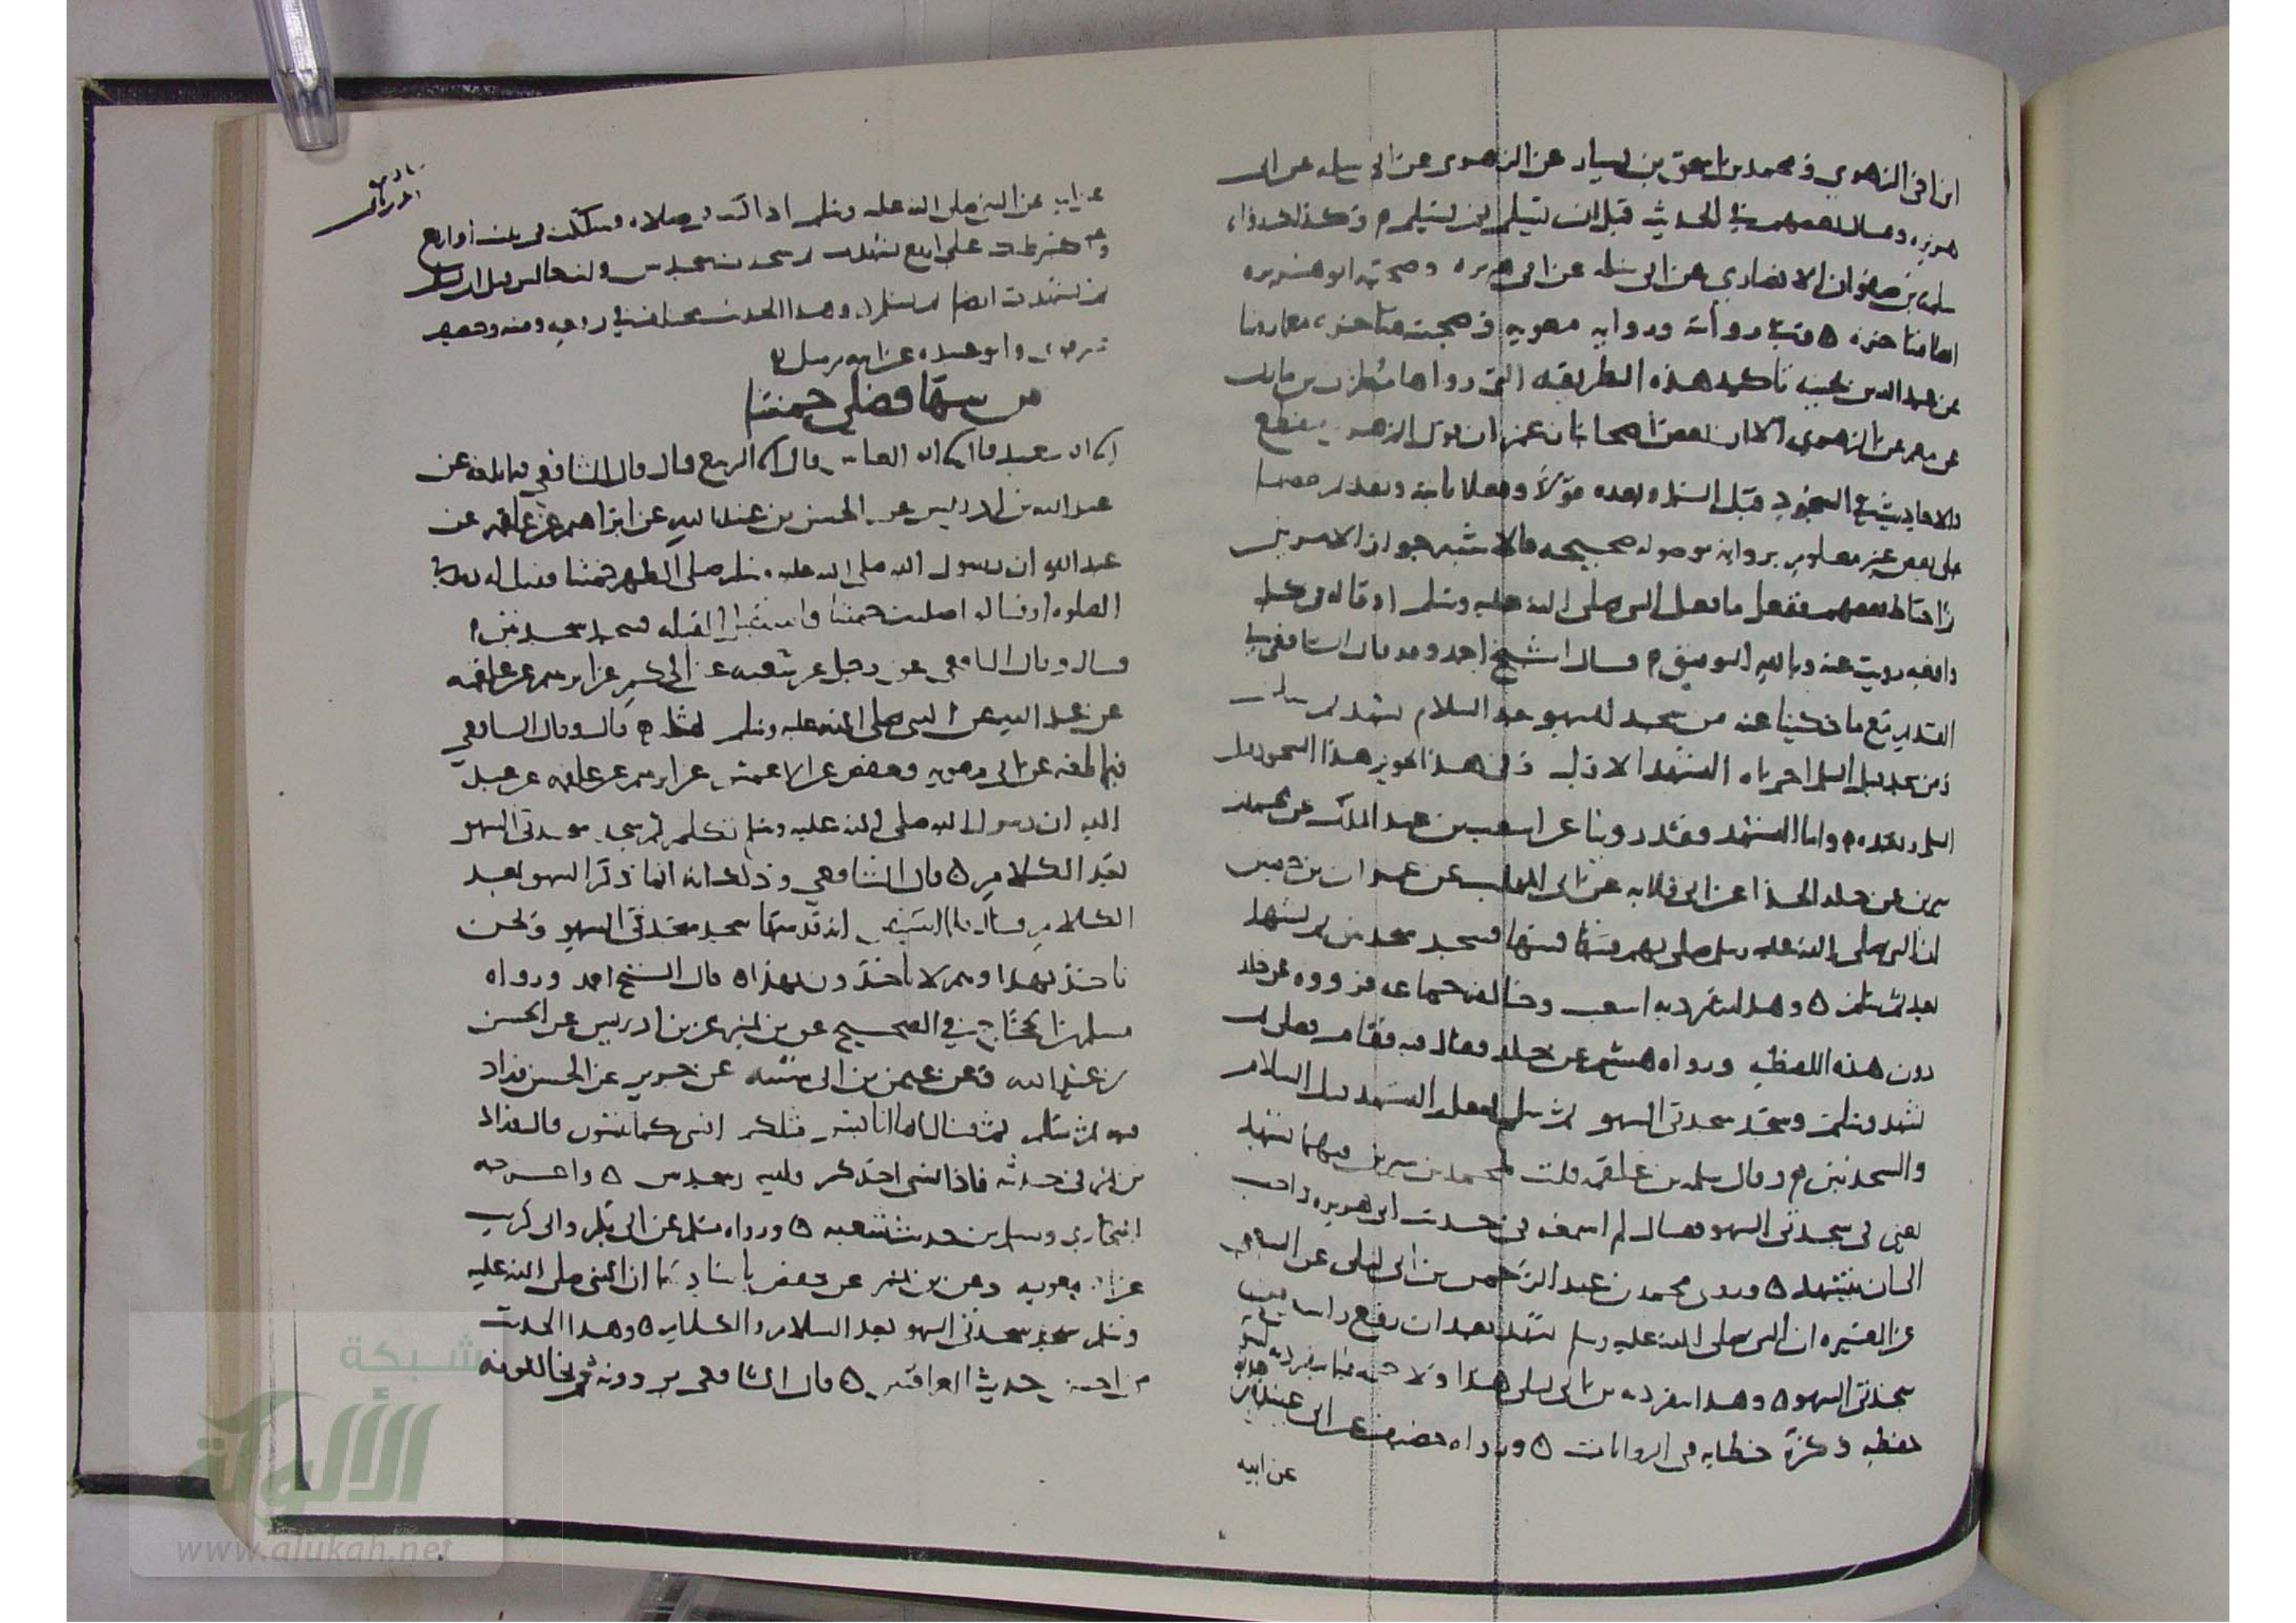 ابن اخي الزهري ومحمد بن اسحق بن يسار عن الزهري عن ابي سلمه عن ابي
هريره وقال بعضهم في الحديث قبل ان يسلم ثم يسلم وكذلك رواه
سلمه بن صفوان الانصاري عن ابي سلمه عن ابي هريره وصحبه ابو هريره
ورواية معويه وصحبته متاخره
عن عبد الله بن بحينه تاكيد هذه الطريقه التي رواها مطرف بن مازن
عن معمر عن الزهري الا ان بعض اصحابنا زعم ان قول الزهري منقطع
والاحاديث في السجود قبل السلام وبعده قولا وفعلا ثابته وتقديم بعضها
على بعض غير معلوم بروايه موصوله صحيحه فالاشبه جواز الامرين
بعضهم ففعل ما فعل النبي صلى الله عليه وسلم او قاله في كل
واقعه رويت عنه وبالله التوفيق قال الشيخ احمد وقد قال الشافعي في
القديم مع ما حكينا عنه من سجد للسهو بعد السلام تشهد ثم سلم
ومن سجد قبل السلام اجزاه التشهد الاول
السلام وبعده واما التشهد فقد روينا عن اشعث بن عبد الملك عن محمد بن
سيرين عن خلد الحذا عن ابي قلابه عن ابي المهلب عن عمران بن حصين
ان النبي صلى الله عليه وسلم صلى بهم فسها فسجد سجدتين ثم تشهد
بعد ثم سلم وهذا تفرد به اشعث وخالفه جماعه فرووه عن خلد
دون هذه اللفظه ورواه هشيم عن خلد فقال فيه فقام فصلى ثم
تشهد وسلم وسجد سجدتي السهو ثم سلم فجعل التشهد قبل السلام
والسجدتين وقال سلمه بن علقمه قلت لمحمد بن سيرين فيهما تشهد
يعني في سجدتي السهو فقال لم اسمعه في حديث ابي هريره واحب
الي ان يتشهد وروى محمد بن عبد الرحمن بن ابي ليلى عن الشعبي
عن المغيره ان النبي صلى الله عليه وسلم تشهد بعد ان رفع راسه من
سجدتي السهو وهذا تفرد به بن ابي ليلى هذا ولا حجه فيما تفرد به لسوء
حفظه وكثرة خطايه في الروايات ورواه خصيف عن ابي عبيده
عن ابيه
عن ابيه عن النبي صلى الله عليه وسلم اذا كنت في صلاه فشككت في ثلث او اربع
واكثر ظنك على اربع تشهدت ثم سجدت سجدتين وانت جالس قبل ان تسلم
ثم تشهدت ايضا ثم تسلم وهذا الحديث مختلف في رفعه ومتنه وخصيف
غير قوي وابو عبيده عن ابيه مرسل
من سها فصلى خمسا
اخبرنا ابو سعيد قال اخبرنا ابو العباس قال اخبرنا الربيع قال قال الشافعي فيما بلغه عن
عبد الله بن ادريس عن الحسن بن عبيد الله عن ابراهيم عن علقمه عن
عبد الله ان رسول الله صلى الله عليه وسلم صلى الظهر خمسا فقيل له زيد في
الصلوه او قال اصليت خمسا فاستقبل القبله فسجد سجدتين
قال وقال الشافعي عن رجل عن شعبه عن الحكم عن ابرهيم عن علقمه
عن عبد الله عن النبي صلى الله عليه وسلم بمثله قال وقال الشافعي
فيما بلغه عن ابي معويه وحفص عن الاعمش عن ابرهيم عن علقمه عن عبد
الله ان رسول الله صلى الله عليه وسلم تكلم ثم سجد سجدتي السهو
بعد الكلام قال الشافعي وذلك انه انما ذكر السهو بعد
الكلام فسال فلما استيقن انه قد سها سجد سجدتي السهو ونحن
ناخذ بهذا وهم لا ياخذون بهذا قال الشيخ احمد ورواه
مسلم بن الحجاج في الصحيح عن بن نمير عن بن ادريس عن الحسن
بن عبيد الله وعن عثمن بن ابي شيبه عن جرير عن الحسن فزاد
فيه ثم سلم ثم قال انما انا بشر مثلكم انسى كما تنسون قال وزاد
بن نمير في حديثه فاذا نسي احدكم فليسجد سجدتين واخرجه
البخاري ومسلم من حديث شعبه ورواه مسلم عن ابي بكر وابي كريب
عن ابي معويه وعن بن نمير عن حفص باسنادهما ان النبي صلى الله عليه
وسلم سجد سجدتي السهو بعد السلام والكلام وهذا الحديث
حديث العراقيين قال الشافعي يروونه ثم يخالفونه
شبكة
الألوكة
www.alukah.net